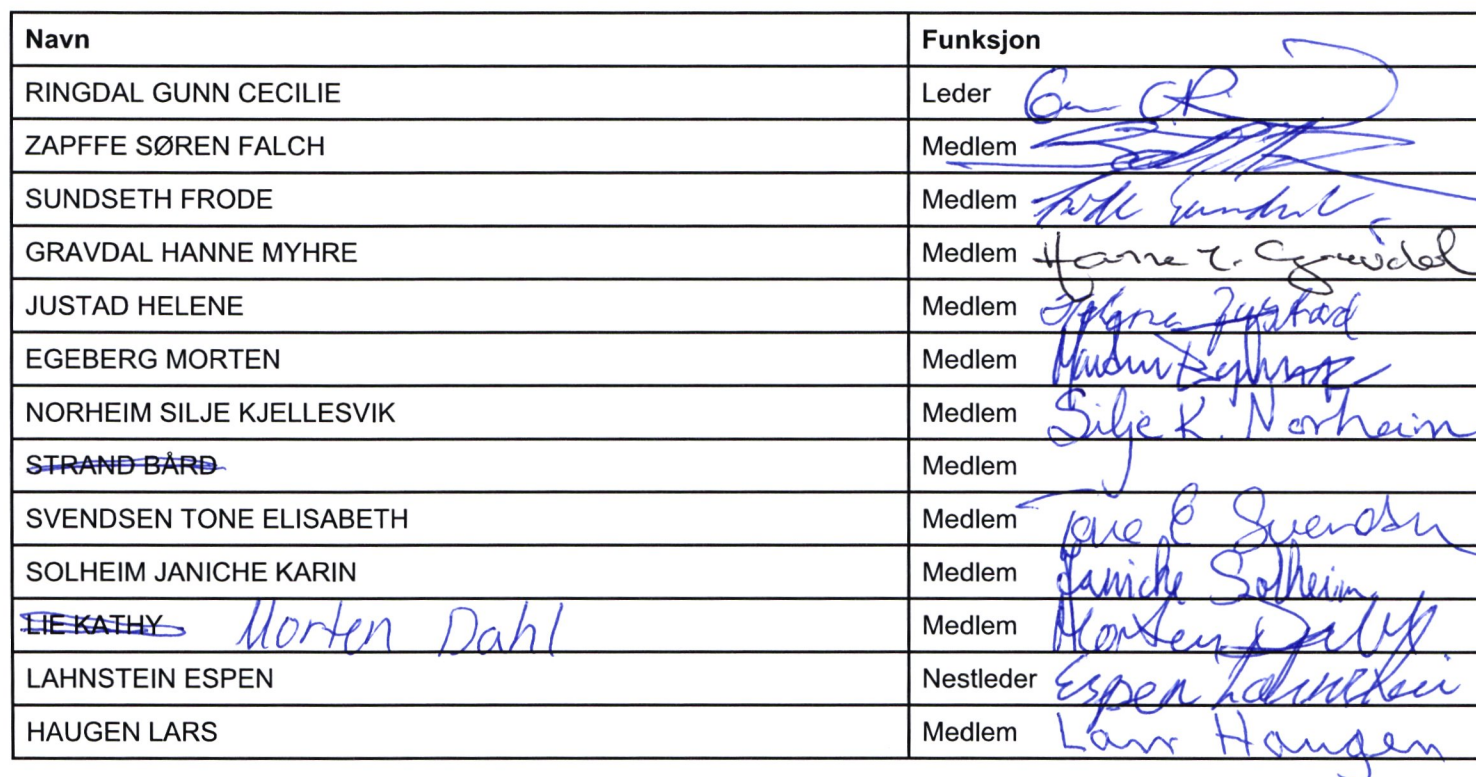 Navn Funksjon
RINGDAL GUNN CECILIE Leder
ZAPFFE SØREN FALCH Medlem
SUNDSETH FRODE Medlem
GRAVDAL HANNE MYHRE Medlem Hanne
JUSTAD HELENE Medlem Helene Justad
EGEBERG MORTEN Medlem
NORHEIM SILJE KJELLESVIK Medlem Silje K. Norheim
STRAND BÅRD Medlem
SVENDSEN TONE ELISABETH Medlem Tone E Svendsen
SOLHEIM JANICHE KARIN Medlem Janiche Solheim
LIE KATHY Morten Dahl Medlem Morten Dahl
LAHNSTEIN ESPEN Nestleder Espen Lahnstein
HAUGEN LARS Medlem Lars Haugen